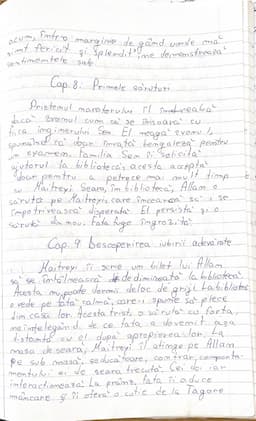 acum, într-o margine de gând unde mă
simt fericit și splendit", îme demonstrează
sentimentele sale.
Cap. 8: Primele săruturi
Prietenul naratorului îl întreabă
dacă zvonul cum că se însoară cu
fiica inginerului Sen. El neagă zvonul,
spunând că doar învață bengaleza pentru
un examen. Familia Sen îi solicită
ajutorul la bibliotecă, acesta acceptă
doar pentru a petrece mai mult timp
cu Maitreyi. Seara, în bibliotecă, Allan o
sărută pe Maitreyi, care încearcă să i se
împotrivească disperată. El persistă și o
sărută din nou. Fata fuge îngrozită.
Cap. 9 Descoperirea iubirii adevărate
Maitreyi îi scrie un bilet lui Allan
să se întâlnească de dimineață la bibliotecă.
Acesta nu poate dormi deloc de griji. La bibliotecă
o vede pe fată calmă, care-i spune să plece
din casa lor. Acesta trist, o sărută cu forța,
neînțelegând de ce fata a devenit așa
distantă cu el după apropierea lor. La
masa de seară, Maitreyi îl atinge pe Allan
pe sub masă, seducătoare, contrar comporta-
mentului ei de seara trecută. Cei doi iar
interacționează. La prânz, fata îi aduce
mâncare și îi oferă o cutie de la Tagore